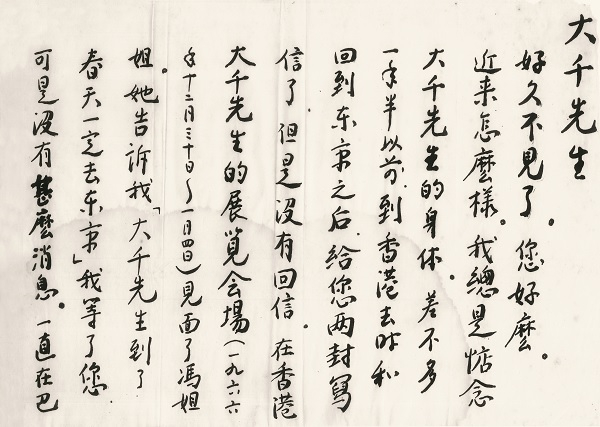 大千先生
好久不見了。您好麼。
近来怎麼樣。我總是惦念
大千先生的身体。差不多
一年半以前、到香港去時和
回到东京之后、给您两封写
信了、但是没有回信。在香港
大千先生的展览会場(一九六六
年十二月三十日~一月四日)見面了冯姐
姐。她告訴我「大千先生到了
春天一定去东京」我等了您
可是没有甚麼消息。一直在巴